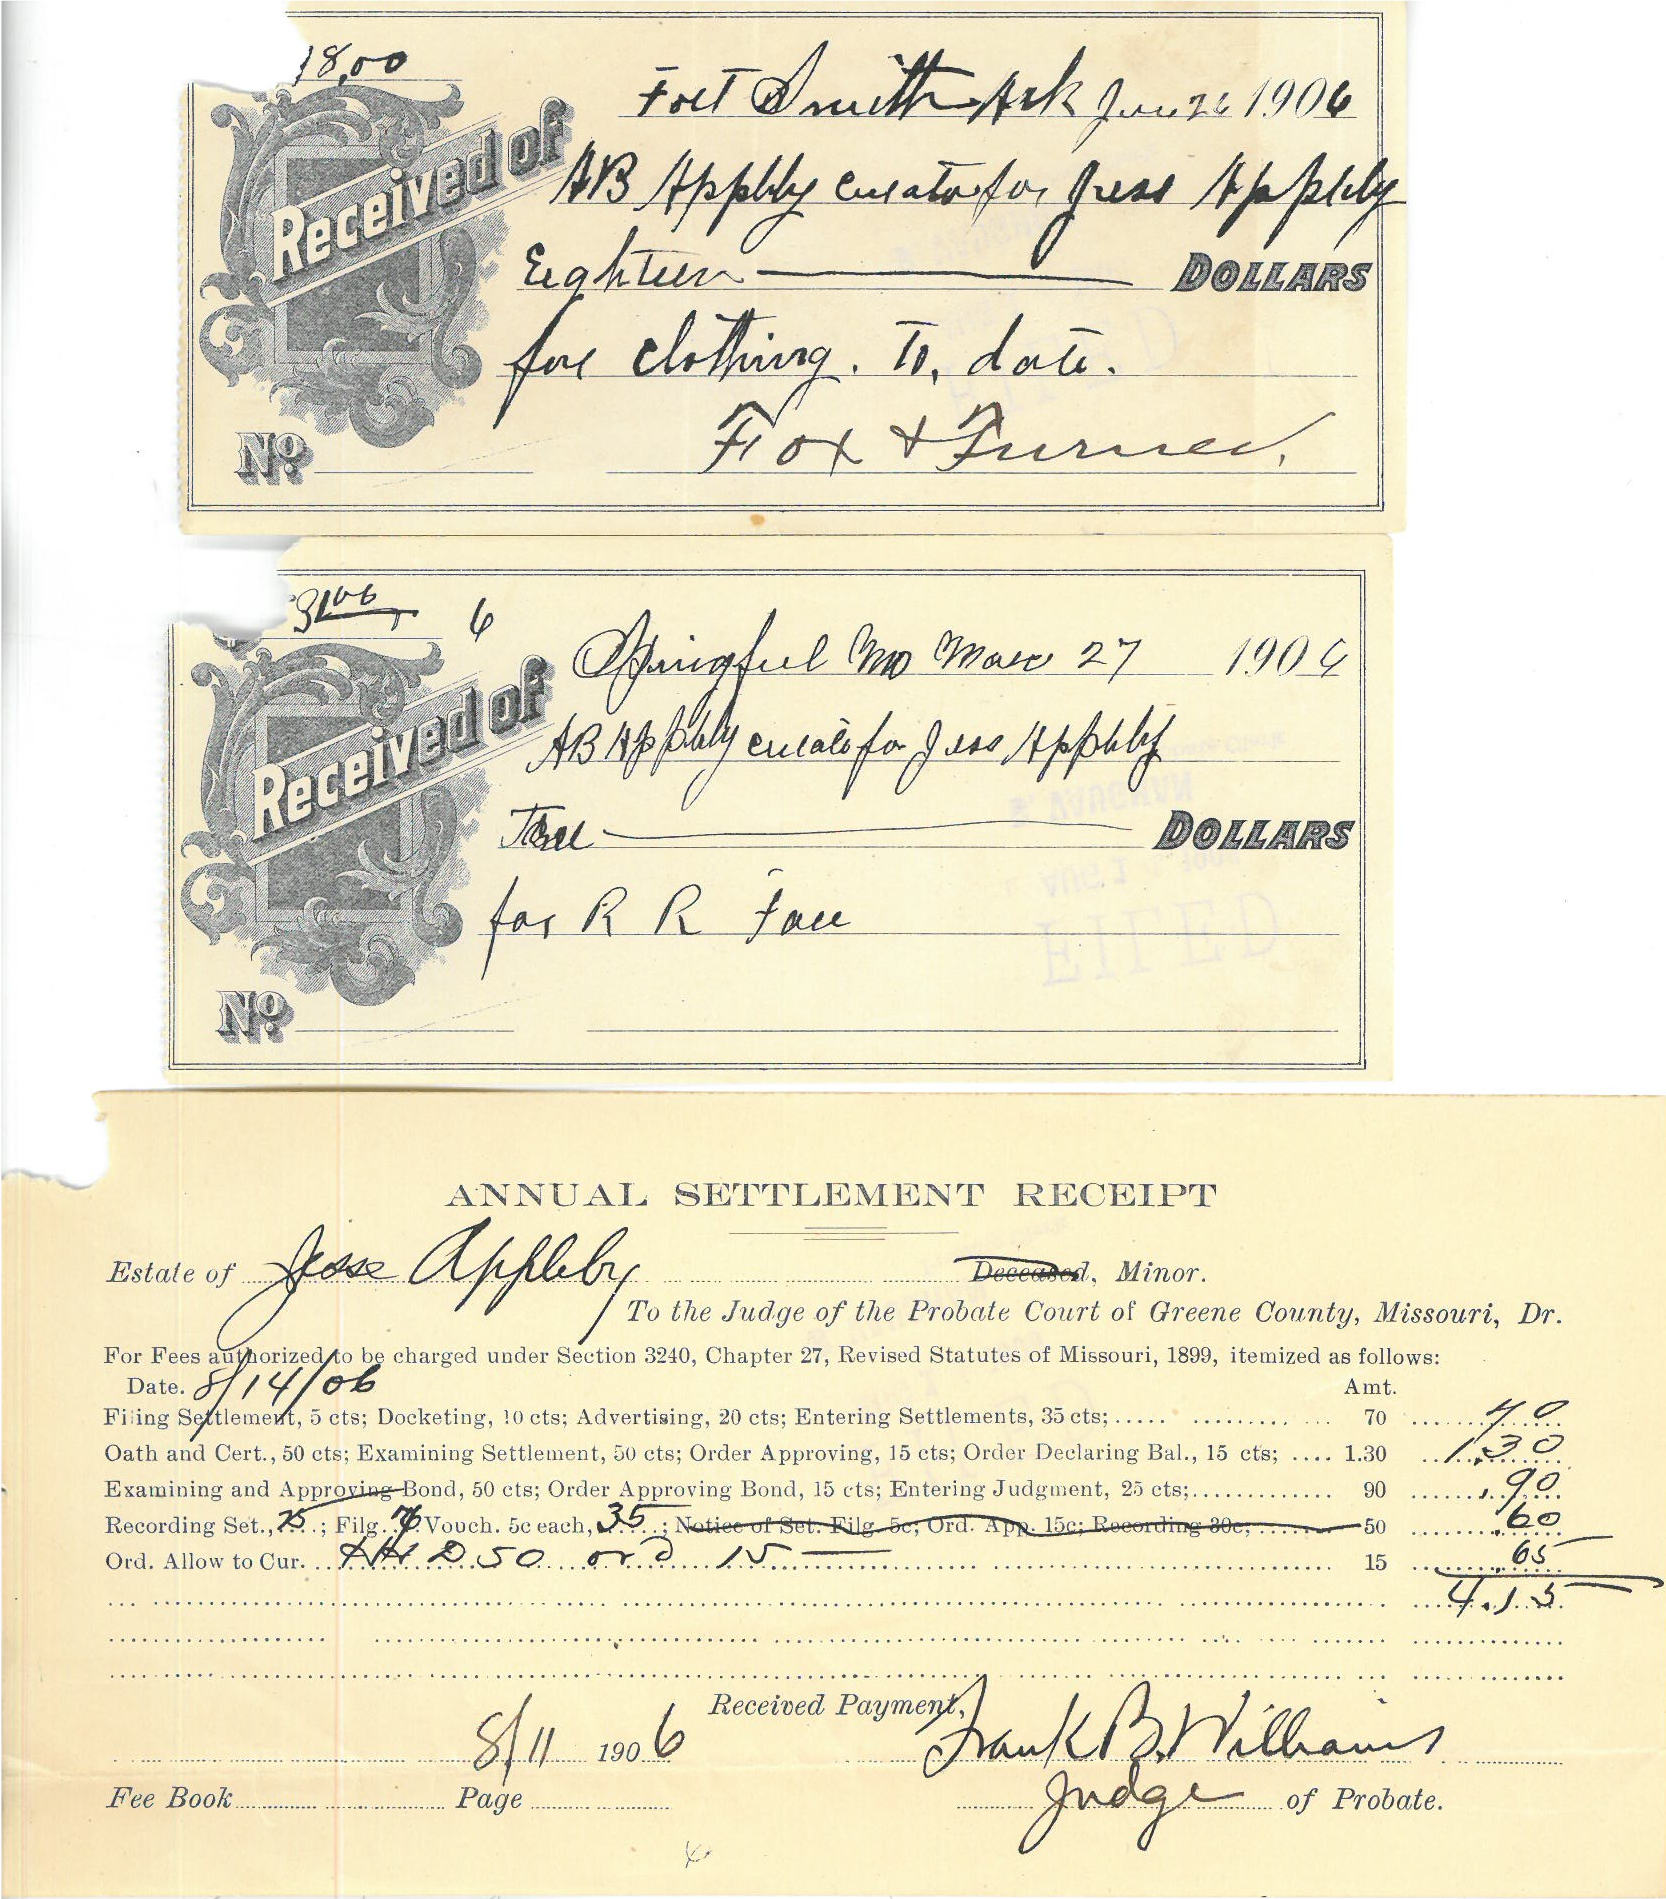 18.00
Fort Smith Ark Jan 26 1906
Received of AB Appleby curator for Jess Appleby
Eighteen DOLLARS
for clothing. To, date.
No. Fox & Turner.
6
Springfiel Mo Mar 27 1906
Received of AB Appleby curator for Jess Appleby
DOLLARS
for R R Fare
No.
B. VAUGHAN
AUG 1
FILED
ANNUAL SETTLEMENT RECEIPT
Estate of Jesse Appleby Deceased, Minor.
To the Judge of the Probate Court of Greene County, Missouri, Dr.
For Fees authorized to be charged under Section 3240, Chapter 27, Revised Statutes of Missouri, 1899, itemized as follows:
Date. 8/14/06 Amt.
Filing Settlement, 5 cts; Docketing, 10 cts; Advertising, 20 cts; Entering Settlements, 35 cts; 70 70
Oath and Cert., 50 cts; Examining Settlement, 50 cts; Order Approving, 15 cts; Order Declaring Bal., 15 cts; 1.30 1.30
Examining and Approving Bond, 50 cts; Order Approving Bond, 15 cts; Entering Judgment, 25 cts; 90 .90
Recording Set., 25; Filg. Vouch. 5c each, 35; Notice of Set. Filg. 5c; Ord. App. 15c; Recording 30c; 50 .60
Ord. Allow to Cur. 50 ord 15 15 .65
4.15
Received Payment,
8/11 1906 Frank B. Williams
Fee Book Page Judge of Probate.